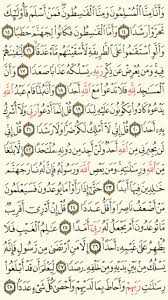 وَأَنَّا مِنَّا ٱلْمُسْلِمُونَ وَمِنَّا ٱلْقَٰسِطُونَۖ فَمَنْ أَسْلَمَ فَأُو۟لَٰٓئِكَ
تَحَرَّوْا۟ رَشَدًا ١٤ وَأَمَّا ٱلْقَٰسِطُونَ فَكَانُوا۟ لِجَهَنَّمَ حَطَبًا ١٥
وَأَلَّوِ ٱسْتَقَٰمُوا۟ عَلَى ٱلطَّرِيقَةِ لَأَسْقَيْنَٰهُم مَّآءً غَدَقًا ١٦ لِّنَفْتِنَهُمْ
فِيهِۚ وَمَن يُعْرِضْ عَن ذِكْرِ رَبِّهِۦ يَسْلُكْهُ عَذَابًا صَعَدًا ١٧ وَأَنَّ
ٱلْمَسَٰجِدَ لِلَّهِ فَلَا تَدْعُوا۟ مَعَ ٱللَّهِ أَحَدًا ١٨ وَأَنَّهُۥ لَمَّا قَامَ عَبْدُ ٱللَّهِ
يَدْعُوهُ كَادُوا۟ يَكُونُونَ عَلَيْهِ لِبَدًا ١٩ قُلْ إِنَّمَآ أَدْعُوا۟ رَبِّى وَلَآ
أُشْرِكُ بِهِۦٓ أَحَدًا ٢٠ قُلْ إِنِّى لَآ أَمْلِكُ لَكُمْ ضَرًّا وَلَا رَشَدًا ٢١
قُلْ إِنِّى لَن يُجِيرَنِى مِنَ ٱللَّهِ أَحَدٌ وَلَنْ أَجِدَ مِن دُونِهِۦ مُلْتَحَدًا ٢٢
إِلَّا بَلَٰغًا مِّنَ ٱللَّهِ وَرِسَٰلَٰتِهِۦۚ وَمَن يَعْصِ ٱللَّهَ وَرَسُولَهُۥ فَإِنَّ لَهُۥ نَارَ جَهَنَّمَ
خَٰلِدِينَ فِيهَآ أَبَدًا ٢٣ حَتَّىٰٓ إِذَا رَأَوْا۟ مَا يُوعَدُونَ فَسَيَعْلَمُونَ
مَنْ أَضْعَفُ نَاصِرًا وَأَقَلُّ عَدَدًا ٢٤ قُلْ إِنْ أَدْرِىٓ أَقَرِيبٌ
مَّا تُوعَدُونَ أَمْ يَجْعَلُ لَهُۥ رَبِّىٓ أَمَدًا ٢٥ عَٰلِمُ ٱلْغَيْبِ فَلَا
يُظْهِرُ عَلَىٰ غَيْبِهِۦٓ أَحَدًا ٢٦ إِلَّا مَنِ ٱرْتَضَىٰ مِن رَّسُولٍ فَإِنَّهُۥ
يَسْلُكُ مِنۢ بَيْنِ يَدَيْهِ وَمِنْ خَلْفِهِۦ رَصَدًا ٢٧ لِّيَعْلَمَ أَن قَدْ أَبْلَغُوا۟
رِسَٰلَٰتِ رَبِّهِمْ وَأَحَاطَ بِمَا لَدَيْهِمْ وَأَحْصَىٰ كُلَّ شَىْءٍ عَدَدًۢا ٢٨